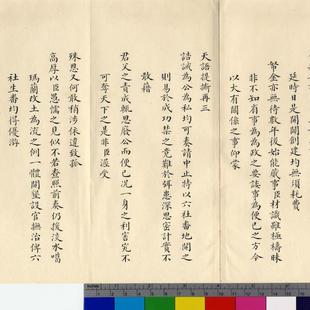 延時日是開闢創建均無須耗費
帑金亦無待數年後始能蕆事臣材識雖極檮昧
非不知有事為為政之要諉事為便己之方今
以大有關係之事仰蒙
天語提撕再三
誥誡為公為私均可奏請中止特以六社番地開之
則易於成功禁之竟難於弭患深思密計實不
敢藉
君父之責成輒思廢公而便己況一身之利害究不
可奪天下之是非臣渥受
殊恩又何敢稍涉依違致孤
高厚以臣愚懦之見似不若查照前奏仍援淡水噶
瑪蘭改土為流之例一體開墾設官撫治俾六
社生番均得優游